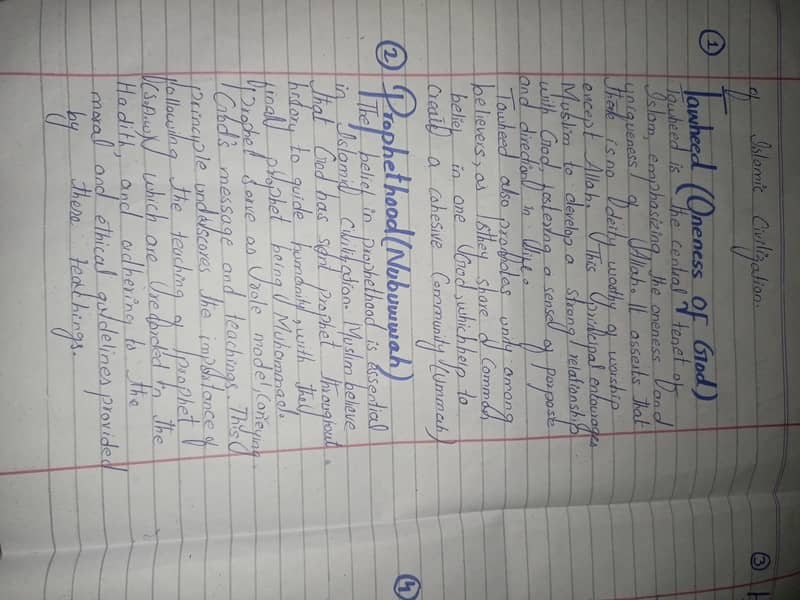 of Islamic Civilization.
① Tawheed (Oneness of God)
Tawheed is the central tenet of
Islam, emphasizing the oneness and
uniqueness of Allah. It asserts that
there is no deity worthy of worship
except Allah. This principal entourages
Muslim to develop a strong relationship
with God, fostering a sense of purpose
and direction in live.
Tawheed also provides unity among
believers, as they share a Common
belief in one God, which help to
create a cohesive Community (Ummah)
② Prophethood (Nubuwwah)
The belief in prophethood is essential
in Islamic Civilization. Muslim believe
that God has sent prophet throughout
history to guide humanity, with the
final prophet being Muhammad.
Prophet serve as role model, conveying
God's message and teachings. This
principle underscores the importance of
following the teaching of prophet
(Sunnah) which are recorded in the
Hadith, and adhering to the
moral and ethical guidelines provided
by there teachings.
③
④